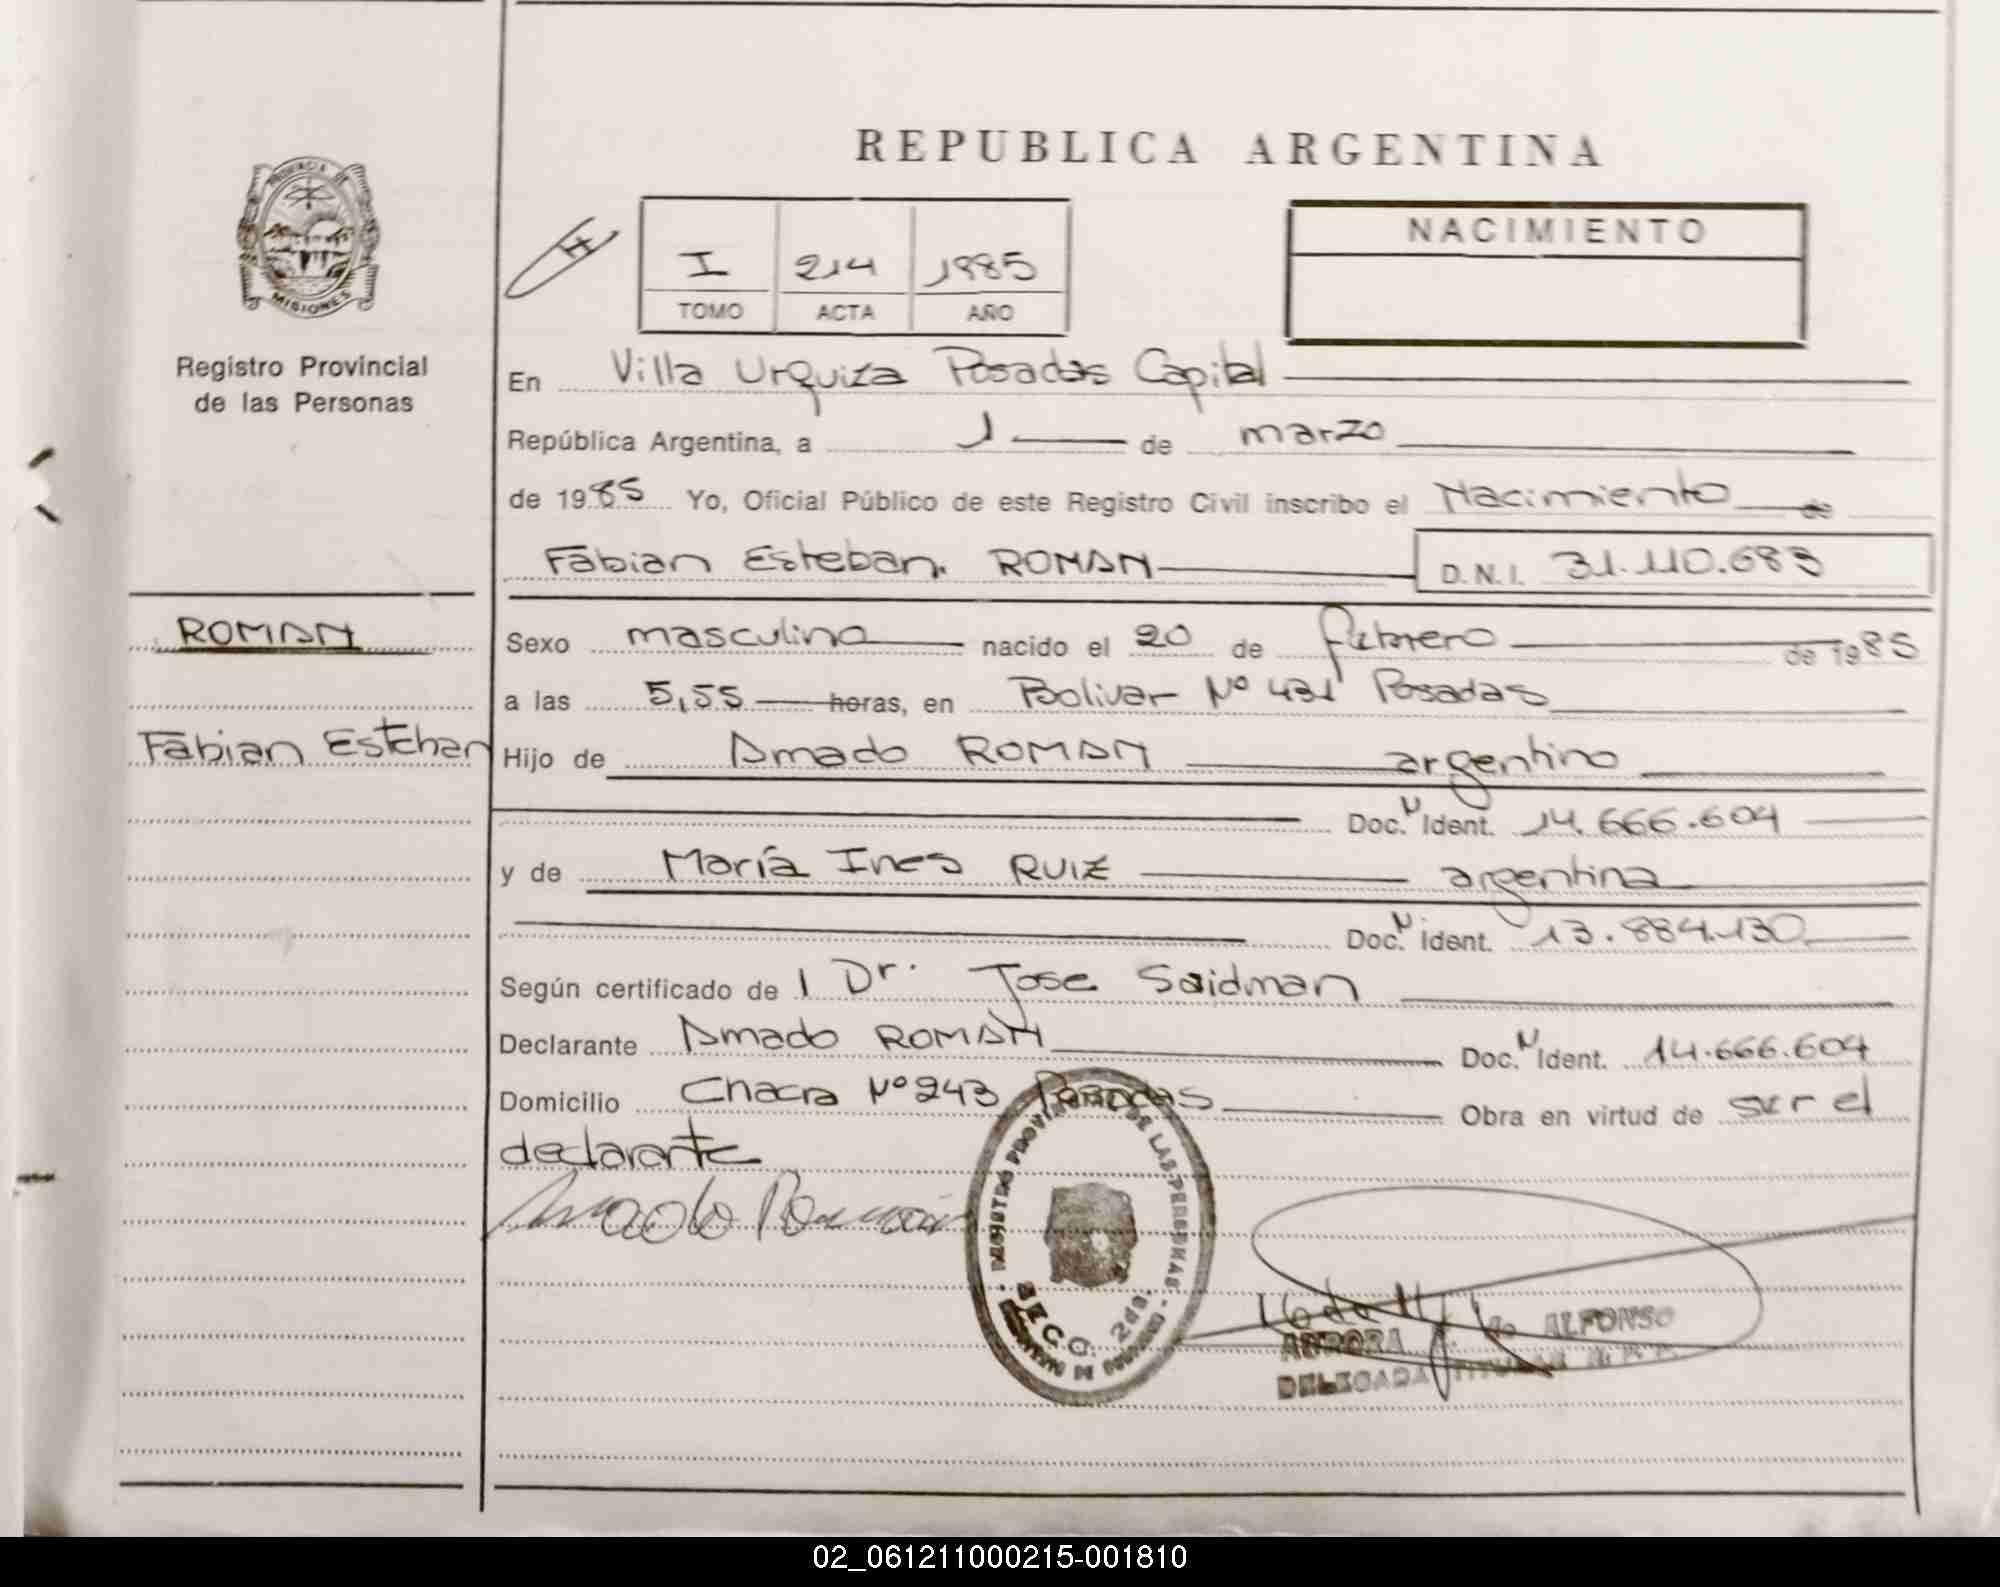 REPUBLICA ARGENTINA
PROVINCIA DE
MISIONES
Registro Provincial
de las Personas
I 214 1985
TOMO ACTA AÑO
NACIMIENTO
En Villa Urquiza Posadas Capital
República Argentina, a 1 de marzo
de 1985 Yo, Oficial Público de este Registro Civil inscribo el Nacimiento de
Fabian Esteban ROMAN D.N.I. 31.110.683
ROMAN
Fabian Esteban
Sexo masculino nacido el 20 de febrero de 1985
a las 5,55 horas, en Bolivar Nº 431 Posadas
Hijo de Amado ROMAN argentino
Doc. N Ident. 14.666.604
y de María Ines RUIZ argentina
Doc. N Ident. 13.884.130
Según certificado de l Dr. Jose Saidman
Declarante Amado ROMAN Doc. N Ident. 14.666.604
Domicilio Chacra Nº 243 Posadas Obra en virtud de ser el
declarante
Amado Roman
REGISTRO PROVINCIAL DE LAS PERSONAS
SECC. 2da.
AURORA ALFONSO
DELEGADA TITULAR
02_061211000215-001810